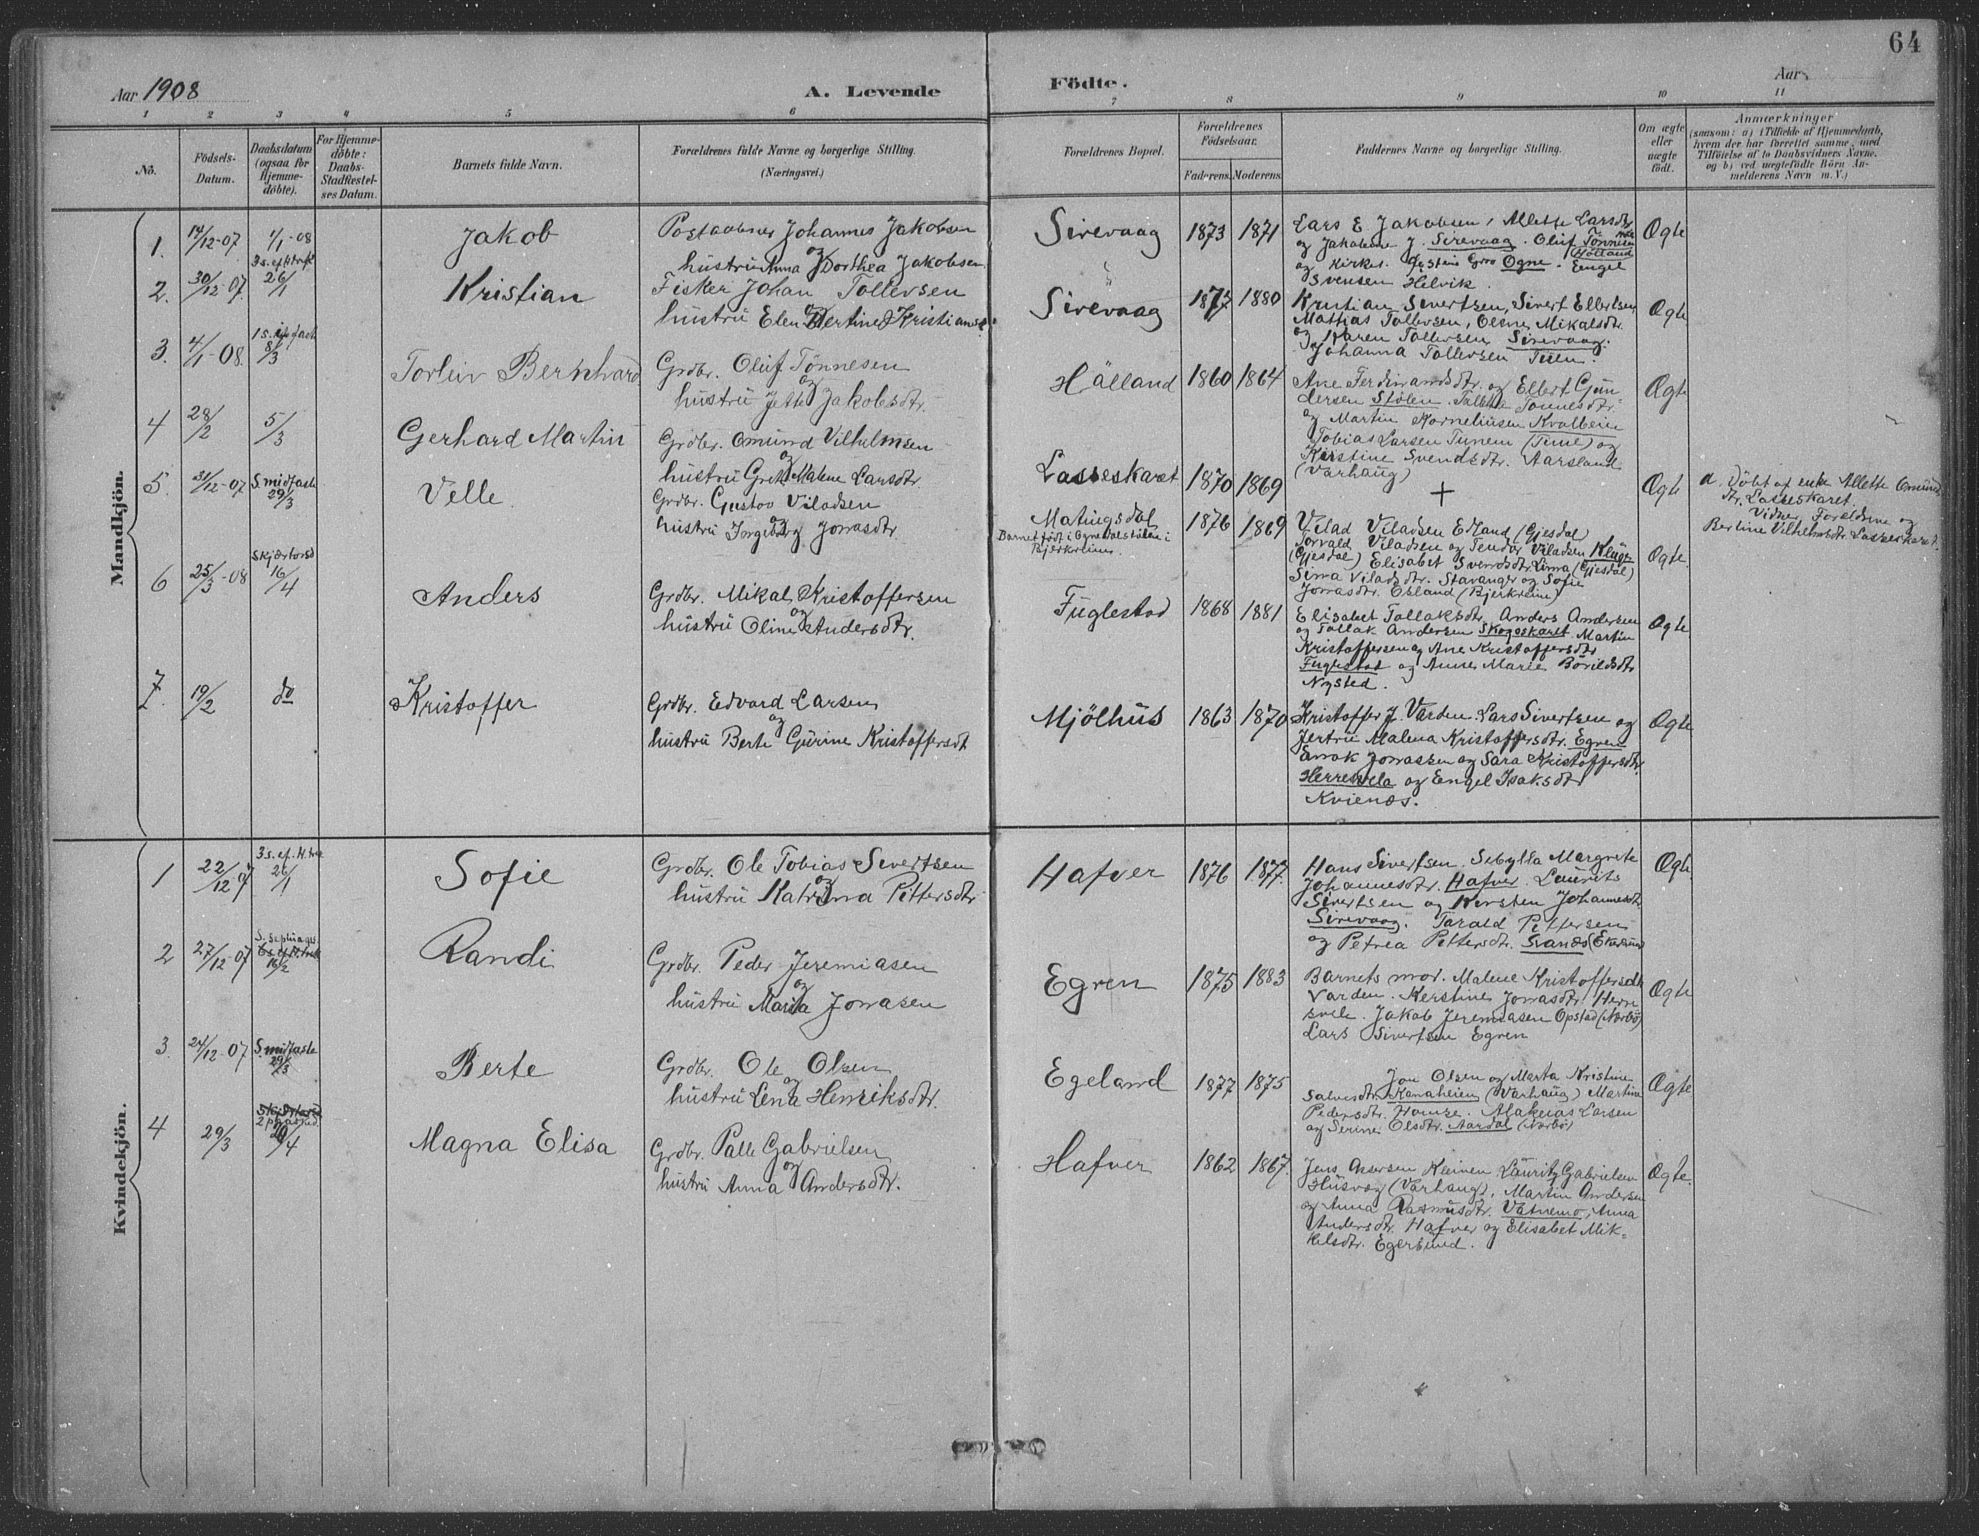 64
Aar 1908
A. Levende
Födte.
Aar
1 2 3 4 5 6 7 8 9 10 11
No.
Födsels-
Datum.
Daabsdatum
(ogsaa for
Hjemme-
döbte).
For Hjemme-
döbte:
Daabs-
Stadfæstel-
ses Datum.
Barnets fulde Navn.
Forældrenes fulde Navne og borgerlige Stilling.
(Næringsvei.)
Forældrenes Bopæl.
Forældrenes
Födselsaar.
Faderens.
Moderens.
Faddernes Navne og borgerlige Stilling.
Om ægte
eller
uægte
födt.
Anmærkninger
(saasom: a) i Tilfælde af Hjemmedaab,
hvem der har forrettet samme, med
Tilföielse af to Daabsvidners Navne,
og b) ved uægtefödte Börn An-
melderens Navn m. V.)
Mandkjön.
1. 14/12-07 1/1-08
Jakob
Postaabner Johannes Jakobsen
og
hustru Anna Dorthea Jakobsen
Sirevaag 1873 1871
Lars E Jakobsen, Mette Larsdtr
og Jakobine J. Sirevaag. Oluf Tönnesen
Hölland
og Kirkes. Gro Ogne. Engel
Svensen Helvik.
Ægte
2. 30/12-07 3 s. ef. H.trek. 26/1
Kristian
Fisker Johan Tollevsen
og
hustru Elen Bertine Kristians
Sirevaag 1877 1880
Kristian Sivertsen, Sivert Elbertsen
Mattias Tollevsen, Olene Mikalsdtr.
og Karen Tollevsen Sirevaag.
Johanna Tollevsen Tuen.
Ægte
3. 4/1-08. 1 s. i faste 8/3
Torleiv Bernhard
Grdbr. Oluf Tönnesen
og
hustru Jette Jakobsdtr.
Hålland 1860 1864
Ane Ferdinandsdtr. og Ellert Gun-
dersen Stölen. Tallette Tönnesdtr.
og Martin Korneliusen Kvalbein
Tobias Larsen Tunem (Time) og
Kirstine Svendsdtr. Aarsland
(Varhaug)
Ægte
4 28/2 5/3
Gerhard Martin
Grdbr. Omund Vilhelmsen
og
hustru Grethe Malene Larsdtr.
Lasseskaret 1870 1869
+
Ægte
a. Döbt af enke Allette Omunds
dtr. Lasseskaret.
Vidner Foreldrene og
Bertine Vilhelmsdtr. Lasseskaret.
5. 31/12-07 S. midfaste 29/3
Velle
Grdbr. Gustav Viladsen
og
hustru Ingeborg Jonasdtr.
Matingsdal
Barnet födt i Ognedalstölen i
Bjerkreim.
1876 1869
Vilad Viladsen Edland (Gjesdal)
Torvald Viladsen og Tendor Viladsen Kluge
(Gjesdal) Elisabet Svendsdtr. Lima (Gjesdal)
Sina Viladsdtr. Stavanger og Sofie
Jonasdtr. Osland (Bjerkreim)
Ægte.
6 25/3-08 Skjærtorsd 16/4
Anders
Grdbr. Mikal Kristoffersen
og
hustru Oline Andersdtr.
Fuglestad 1868 1881
Elisabet Tollaksdtr. Anders Andersen
og Tollak Andersen Skogeskaret. Martin
Kristoffersen og Ane Kristoffersdtr
Fuglestad og Anne Marie Börildsdtr
Nysted.
Ægte
7. 19/2 do
Kristoffer
Grdbr. Edvard Larsen
og
hustru Berte Gurine Kristoffersdt
Mjölhus 1863 1870
Kristoffer J. Varden. Lars Sivertsen og
Jertru Malena Kristoffersdtr. Egren
Enok Jonassen og Sara Kristoffersdtr.
Herresvela og Engel Isaksdtr
Kvienes.
Ægte
Kvindekjön.
1 22/12 07 3 s. ef. H.trek 26/1
Sofie
Grdbr. Ole Tobias Sivertsen
og
hustru Katrina Pettersdtr
Hafver 1876 1877.
Hans Sivertsen. Sebylla Margrete
Johannesdtr. Hafver. Laurits
Sivertsen og Kirsten Johannesdtr.
Sirevaag. Tarald Pettersen
og Petrea Pettersdtr. Svanes (Ekersund
Ægte
2 27/12 07 S. septuages 16/2
Randi
Grdbr. Peder Jeremiasen
og
hustru Maria Jonasen
Egren 1875 1883
Barnets mor. Malene Kristoffersdtr
Varden. Kerstine Jonasdtr. Herre
svele. Jakob Jeremiasen Opstad (Nærbö)
Lars Sivertsen Egren
Ægte
3. 24/12-07 S. midfaste 29/3
Berte
Grdbr. Ole Olsen
og
hustru Lena Henriksdtr.
Egeland 1877 1875
Jon Olsen og Marta Kristine
Salvesdtr. Kanaheien (Varhaug) Martine
Pedersdtr. Homse. Makeus Larsen
og Serine Olsdtr. Aardal (Nærbö)
Ægte
4 29/3 Skjærtorsd 2 paaskd. 20/4
Magna Elisa
Grdbr. Palle Gabrielsen
og
hustru Anna Andersdtr.
Hafver 1862 1867.
Jens Assersen Kleiven Lauritz Gabrielsen
Husveg (Varhaug), Martin Andersen
og Anna Rasmusdtr. Vatnemo, Anna
Andersdtr. Hafver og Elisabet Mik-
kelsdtr. Egersund.
Ægte.